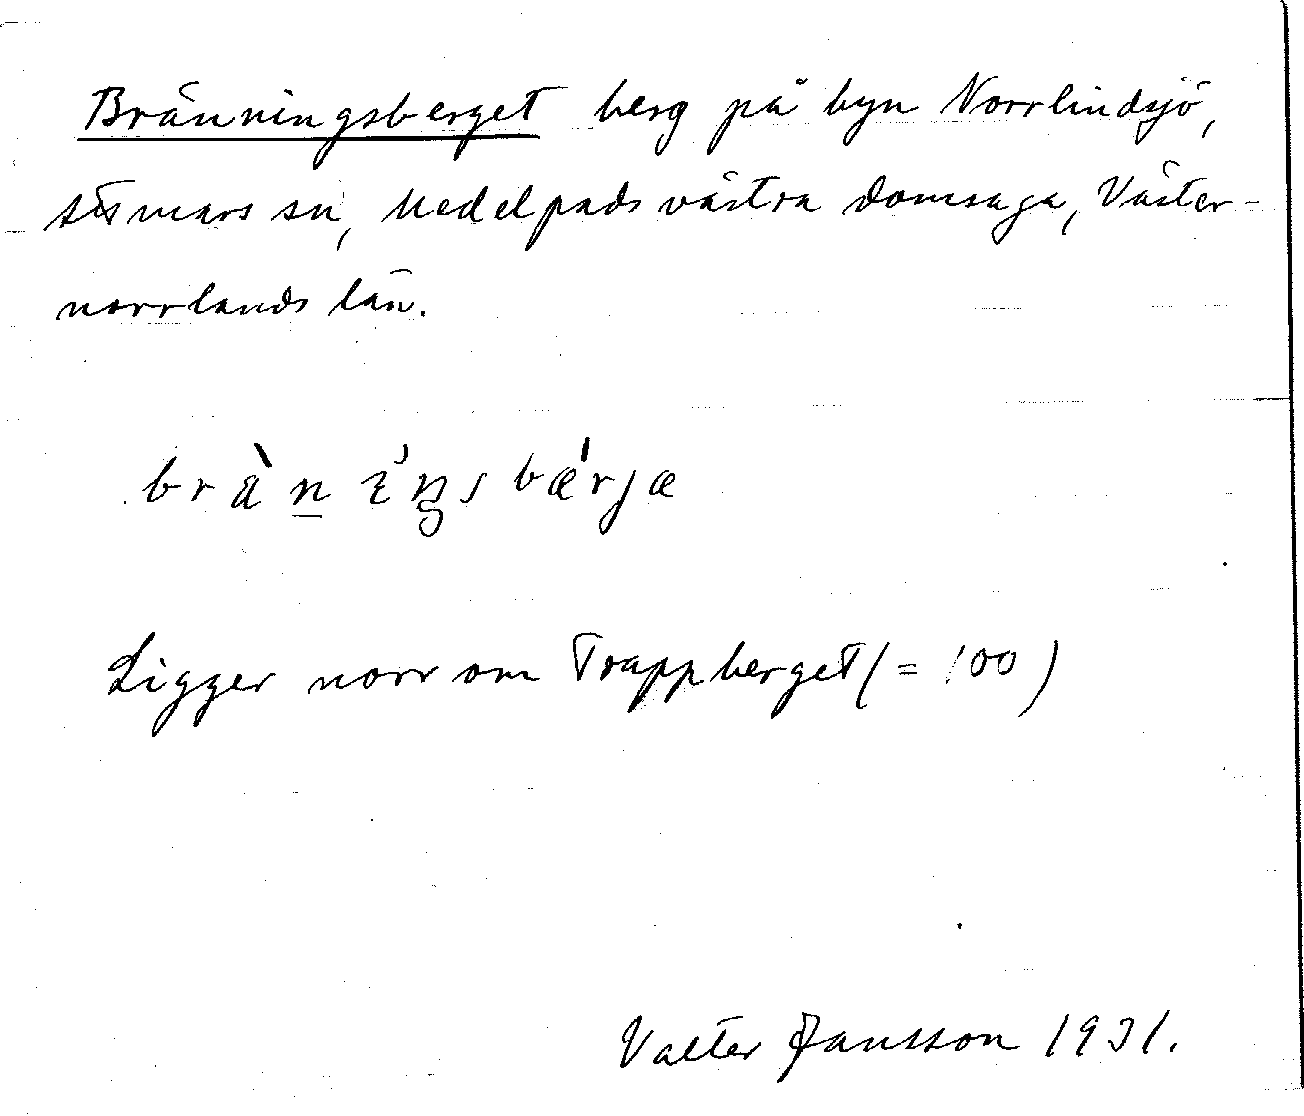 Bränningsberget berg på byn Norrlindsjö,
Lidsmars sn, Medelpads västra domsaga, Väster-
norrlands län.
bræ̀n ıŋsbæ'rja
Ligger norr om Trappberget (= 100)
Valter Jansson 1931.